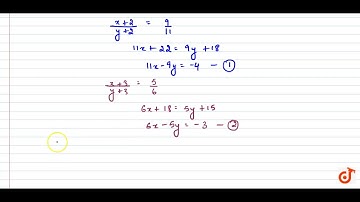 x+2/y+2 = 9/11
11x+22 = 9y+18
11x-9y = -4 — ①
x+3/y+3 = 5/6
6x+18 = 5y+15
6x-5y = -3 — ②